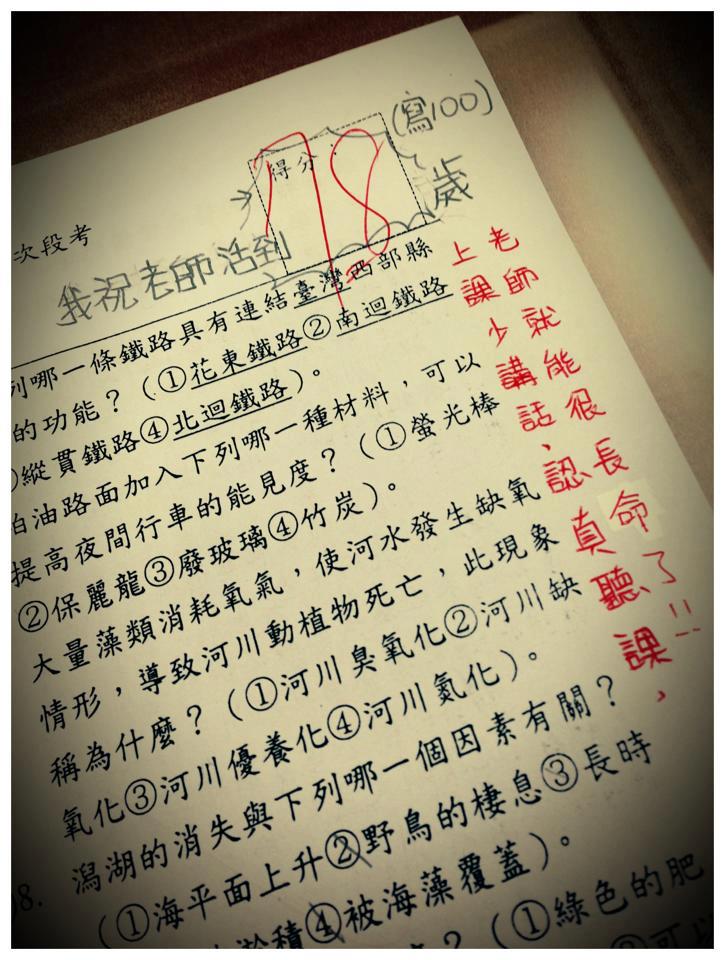 (寫100)
得分:
78
歲
次段考
我祝老師活到
上課少講話、認真聽課,
老師就能很長命了!!
列哪一條鐵路具有連結臺灣西部縣
的功能?(①花東鐵路②南迴鐵路
縱貫鐵路④北迴鐵路)。
柏油路面加入下列哪一種材料,可以
提高夜間行車的能見度?(①螢光棒
②保麗龍③廢玻璃④竹炭)。
大量藻類消耗氧氣,使河水發生缺氧
情形,導致河川動植物死亡,此現象
稱為什麼?(①河川臭氧化②河川缺
氧化③河川優養化④河川氮化)。
8. 潟湖的消失與下列哪一個因素有關?
(①海平面上升②野鳥的棲息③長時
淤積④被海藻覆蓋)。
?(①綠色的肥